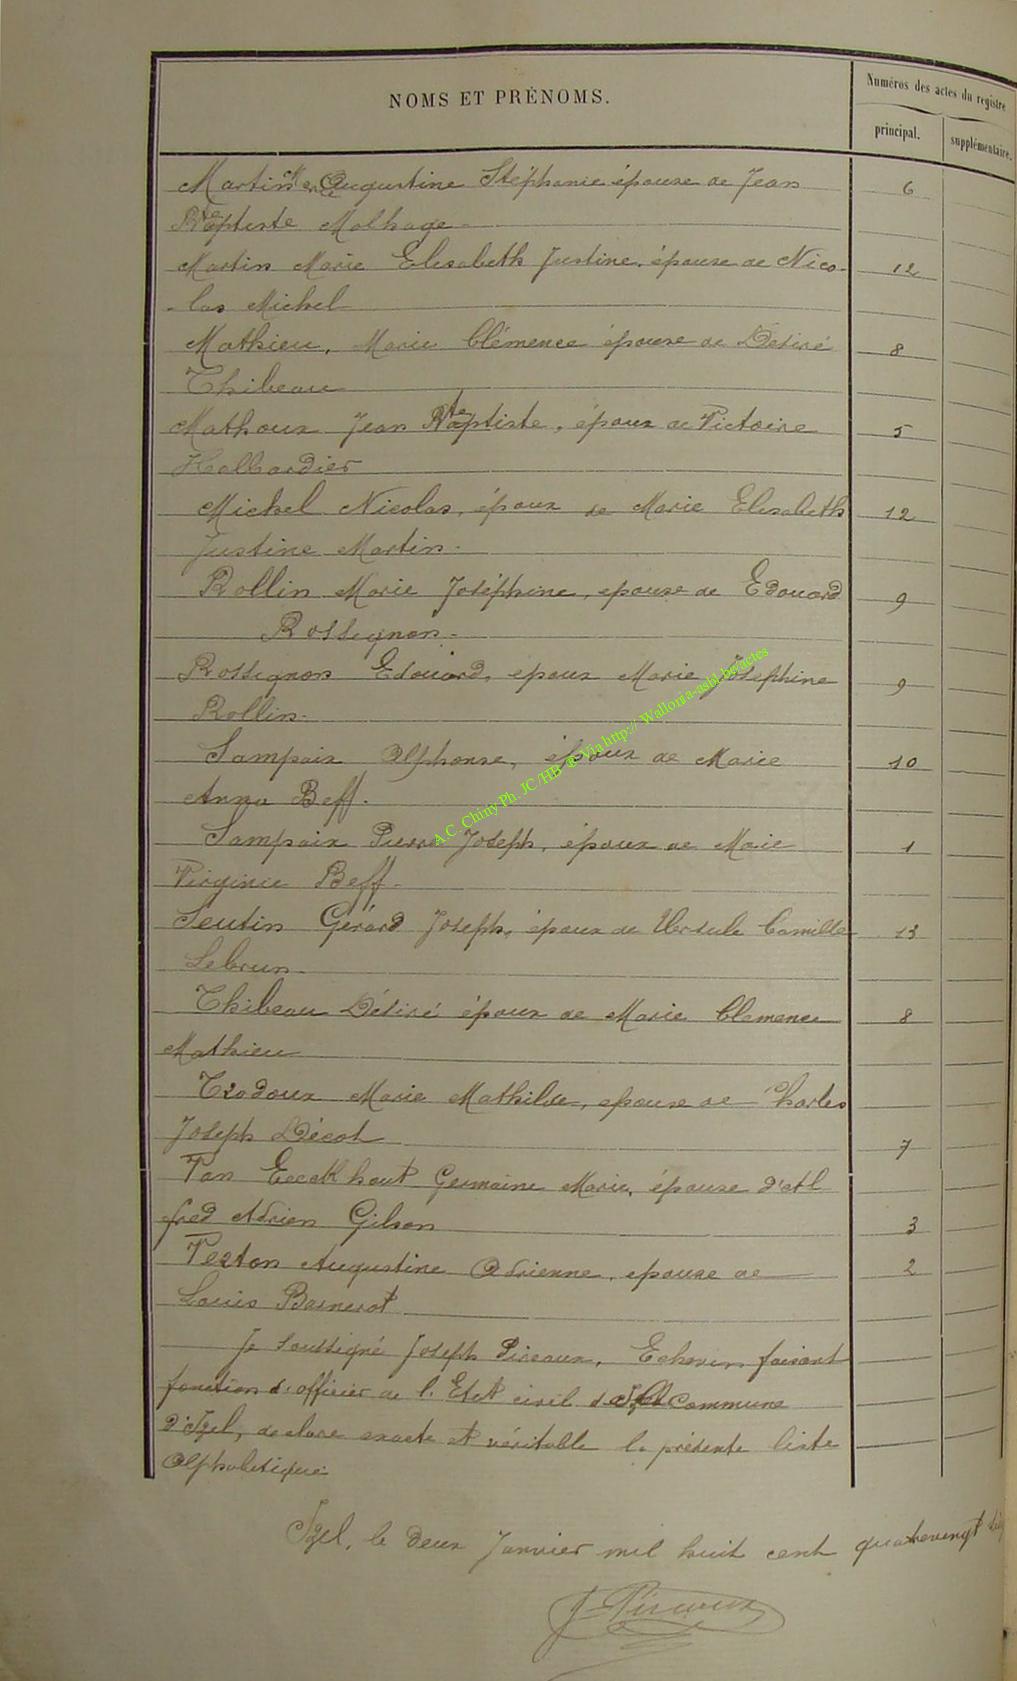 NOMS ET PRÉNOMS.
Numéros des actes du registre
principal.
supplémentaire.
Martin Augustine Stéphanie épouse de Jean 6
Baptiste Malhage
Martin Marie Elisabeth Justine, épouse de Nico- 12
-las Michel
Mathieu, Marie Clémence épouse de Désiré 8
Thibeau
Mathoux Jean Baptiste, époux de Victoire 5
Hallbardier
Michel Nicolas, époux de Marie Elisabeth 12
Justine Martin.
Rollin Marie Joséphine, epouse de Edouard 9
Rossignon.
Rossignon Edouard, epoux Marie Josephine 9
Rollin.
Sampaix Alphonse, époux de Marie 10
Anna Beff.
Sampaix Pierre Joseph, époux de Marie 1
Virginie Beff.
Seutin Gérard Joseph, époux de Ursule Camille 13
Lebrun.
Thibeau Désiré époux de Marie Clemence 8
Mathieu
Trodoux Marie Mathilde, epouse de Charles
Joseph Décot 7
Van Germaine Marie, épouse d'Al
fred Adrien Gilson 3
Verton Augustine Adrienne, epouse de 2
Louis Barnerot
Je soussigné Joseph Pireaux, Echevin faisant
fonction d'officier de l'Etat civil de la commune
d'Izel, declare exacte et véritable la présente liste
Alphabetique
Izel, le deux Janvier mil huit cent quatrevingt
J. Pireaux
A.C. Chiny Ph. JC /HB © Via http:// Wallonia-asbl.be/actes